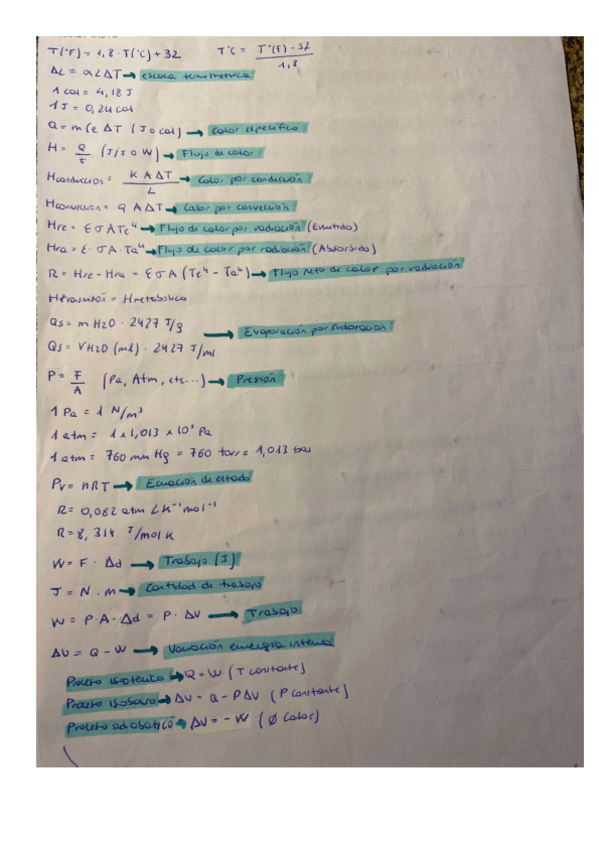 T(°F) = 1,8 · T(°C) + 32     T°C = T°(F) - 32 / 1,8
ΔL = αLΔT → escala termometrica
1 cal = 4,18 J
1 J = 0,24 cal
Q = m Ce ΔT (J o cal) → Calor especifico
H = Q/t (J/s o W) → Flujo de calor
Hconduccion = K A ΔT / L → Calor por conducción
Hconvección = q A ΔT → Calor por convección
Hre = ε σ A Te⁴ → Flujo de calor por radiación (Emitido)
Hra = ε · σ A · Ta⁴ → Flujo de calor por radiación (Absorbido)
R = Hre - Hra = ε σ A (Te⁴ - Ta⁴) → Flujo Neto de calor por radiación
Htransmisión = Hmetabolico
Qs = m H2O · 2427 J/g
→ Evaporación por sudoración
Qs = V H2O (ml) · 2427 J/ml
P = F/A (Pa, Atm, etc...) → Presión
1 Pa = 1 N/m³
1 atm = 1 x 1,013 x 10⁵ Pa
1 atm = 760 mm Hg = 760 torr = 1,013 bar
PV = nRT → Ecuación de estado
R = 0,082 atm L K⁻¹ mol⁻¹
R = 8,314 J/mol K
W = F · Δd → Trabajo (J)
J = N · m → Cantidad de trabajo
W = P · A · Δd = P · ΔV → Trabajo
ΔU = Q - W → Variación energia interna
Proceso isotérmico → Q = W (T constante)
Proceso isobaro → ΔU = Q - PΔV (P constante)
Proceso adiabatico → ΔU = - W (Ø Calor)